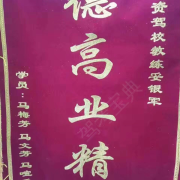 赞驾校教练安银军
德高业精
学员：马梅芳 马文芳 马喧